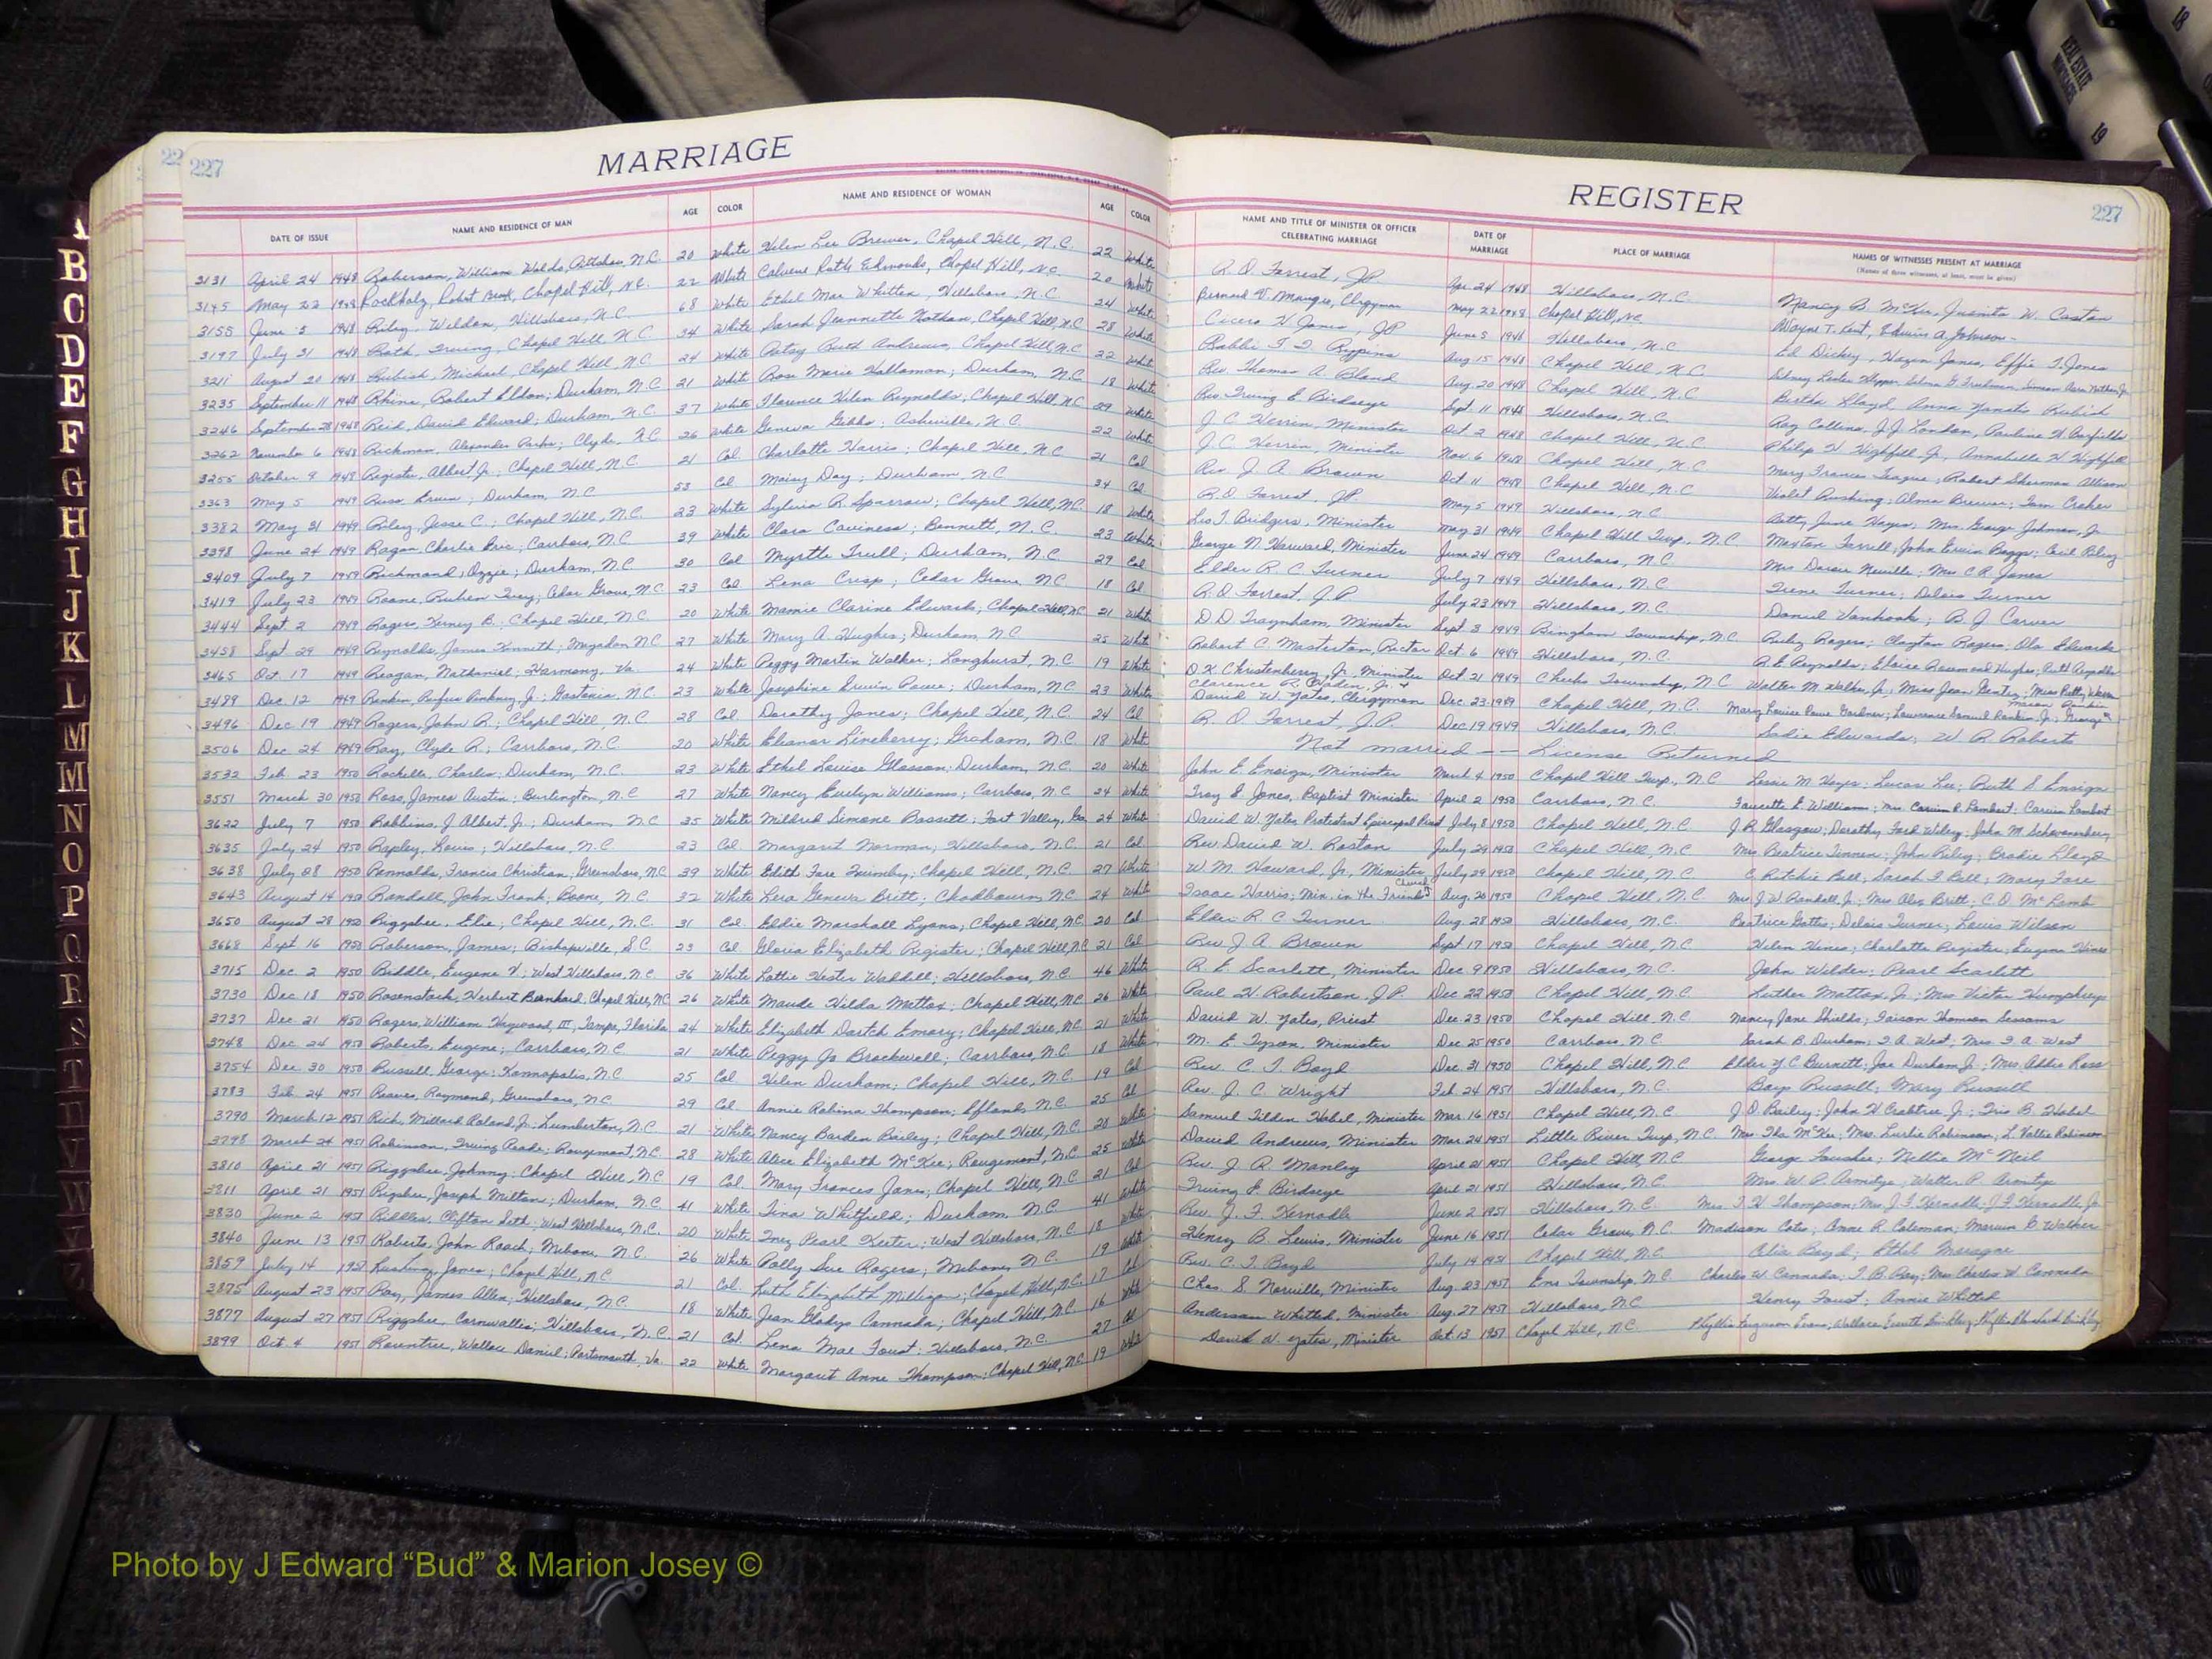 22 227
MARRIAGE
REGISTER
227
DATE OF ISSUE NAME AND RESIDENCE OF MAN AGE COLOR NAME AND RESIDENCE OF WOMAN AGE COLOR NAME AND TITLE OF MINISTER OR OFFICER CELEBRATING MARRIAGE DATE OF MARRIAGE PLACE OF MARRIAGE NAMES OF WITNESSES PRESENT AT MARRIAGE
(Names of three witnesses, at least, must be given)
3131 April 24 1948 Roberson, William Waldo, Pittsboro, N.C. 20 White Helen Lee Brewer, Chapel Hill, N.C. 22 White R.O. Forrest, J.P. Apr. 24 1948 Hillsboro, N.C. Nancy B. McKee, Juanita W. Caston
3145 May 22 1948 Chapel Hill, N.C. 22 White Ruth Edmonds, Chapel Hill, N.C. 20 White Clergyman May 22 1948 Chapel Hill, N.C. Wayne T. Johnson
3155 June 5 1948 Riley, Weldon, Hillsboro, N.C. 68 White Ethel Mae Whitten, Hillsboro, N.C. 24 White Cicero H. Jones, J.P. June 5 1948 Hillsboro, N.C. Ed Dickey, Hazen Jones, Effie T. Jones
3197 July 31 1948 Roth, Irving, Chapel Hill, N.C. 34 White Sarah Jeannette Nathan, Chapel Hill, N.C. 28 White Rabbi Aug 15 1948 Chapel Hill, N.C.
3211 August 20 1948 Rubish, Michael, Chapel Hill, N.C. 24 White Betsy Ruth Andrews, Chapel Hill, N.C. 22 White Rev. Thomas A. Bland Aug. 20 1948 Chapel Hill, N.C. Bertha Lloyd, Anna Rubish
3235 September 11 1948 Rhine, Robert Eldon; Durham, N.C. 21 White Rose Marie Holloman; Durham, N.C. 18 White Rev. Irving E. Birdseye Sept. 11 1948 Hillsboro, N.C. Ray Collins, J.J. London, Pauline H.
3246 September 28 1948 Reid, David Edward; Durham, N.C. 37 White Florence Helen Reynolds; Chapel Hill, N.C. 29 White J.C. Herrin, Minister Oct 2 1948 Chapel Hill, N.C. Philip H. Highfill Jr., Annabelle H. Highfill
3262 November 6 1948 Rickman, Alexander Parks; Clyde, N.C. 26 White Geneva Gibbs; Asheville, N.C. 22 White J.C. Herrin, Minister Nov. 6 1948 Chapel Hill, N.C. Mary Frances Teague; Robert Sherman Allison
3255 October 9 1948 Register, Albert Jr.; Chapel Hill, N.C. 21 Col Charlotte Harris; Chapel Hill, N.C. 21 Col Rev. J.A. Brown Oct 11 1948 Chapel Hill, N.C. Violet Alma Brewer; Tom Croker
3363 May 5 1949 Russ, Ervin; Durham, N.C. 53 Col Maisy Day; Durham, N.C. 34 Col R.O. Forrest, J.P. May 5 1949 Hillsboro, N.C. Betty June Hayes; Mrs. George Johnson, Jr.
3382 May 31 1949 Riley, Jesse C.; Chapel Hill, N.C. 23 White Sylvia R. Sparrow; Chapel Hill, N.C. 18 White Leo T. Bridgers, Minister May 31 1949 Chapel Hill Twp., N.C. Moxton Ferrell; John Ervin Boggs; Cecil Riley
3398 June 24 1949 Ragan, Charlie Bric; Carrboro, N.C. 39 White Clara Caviness; Bennett, N.C. 23 White George N. Harward, Minister June 24 1949 Carrboro, N.C. Mrs Neville; Mrs C.R. Jones
3409 July 7 1949 Richmond, Ozzie; Durham, N.C. 30 Col Myrtle Trull; Durham, N.C. 29 Col Elder R.C. Turner July 7 1949 Hillsboro, N.C. Irene Turner; Delois Turner
3419 July 23 1949 Roone, Ruben Ivey; Cedar Grove, N.C. 23 Col Lena Crisp; Cedar Grove, N.C. 18 Col R.O. Forrest, J.P. July 23 1949 Hillsboro, N.C. Daniel Vanhook; B.J. Carver
3444 Sept. 2 1949 Rogers, Kerney B.; Chapel Hill, N.C. 20 White Mamie Clarine Edwards, Chapel Hill, N.C. 21 White D.D. Traynham, Minister Sept 3 1949 Bingham Township, N.C. Ruby Rogers; Clayton Rogers; Ola Edwards
3458 Sept. 29 1949 Reynolds, James Kenneth; Mogadon N.C. 27 White Mary A. Hughes; Durham, N.C. 25 White Robert C. Masterton, Rector Oct. 6 1949 Hillsboro, N.C. R.E. Reynolds; Eloise Hughes; Ruth Reynolds
3465 Oct. 17 1949 Reagan, Nathaniel; Harmony, Va. 24 White Peggy Martin Walker; Longhurst, N.C. 19 White D.K. Christenberry, Jr. Minister Oct 21 1949 Cheeks Township, N.C. Walter M. Walker, Jr.; Miss Jean Gentry;
3489 Dec. 12 1949 Rankin, Rufus Jr.; Gastonia, N.C. 23 White Josephine Erwin Rowe; Durham, N.C. 23 White David W. Yates, Clergyman Dec. 23 1949 Chapel Hill, N.C. Mary Louise Rowe Gardner; Lawrence Samuel Rankin, Jr.; George Mason Rankin
3496 Dec 19 1949 Rogers, John R.; Chapel Hill, N.C. 28 Col. Dorothy Jones; Chapel Hill, N.C. 24 Col R.O. Forrest, J.P. Dec 19 1949 Hillsboro, N.C. Sadie Edwards; W.R. Roberts
3506 Dec 24 1949 Ray, Clyde R.; Carrboro, N.C. 20 White Eleanor Lineberry; Graham, N.C. 18 White Not married -- License Returned
3532 Feb. 23 1950 Rochelle, Charles; Durham, N.C. 23 White Ethel Louise Glosson; Durham, N.C. 20 White John E. Ensign, Minister March 4 1950 Chapel Hill Twp., N.C. Lessie M. Hayes; Lucas Lee; Ruth S. Ensign
3551 March 30 1950 Ross, James Austin; Burlington, N.C. 27 White Nancy Evelyn Williams; Carrboro, N.C. 24 White Troy E. Jones, Baptist Minister April 2 1950 Carrboro, N.C. Faucette E. Williams; Mrs. Carvin R. Lambert; Carvin Lambert
3622 July 7 1950 Robbins, J. Albert, Jr.; Durham, N.C. 35 White Mildred Simone Bassett; Fort Valley, Ga. 24 White David W. Yates, Protestant Episcopal Priest July 8 1950 Chapel Hill, N.C. J.R. Glasgow; Dorothy Ford Wiley; John M.
3635 July 24 1950 Rapley, Louis; Hillsboro, N.C. 23 Col. Margaret Norman; Hillsboro, N.C. 21 Col. Rev. David W. Roston July 29 1950 Chapel Hill, N.C. Mrs Beatrice Tinnen; John Riley; Brodie Lloyd
3638 July 28 1950 Rennolds, Francis Christian; Greensboro, N.C. 39 White Edith Fore Quimby; Chapel Hill, N.C. 27 White W.M. Howard, Jr., Minister July 29 1950 Chapel Hill, N.C. C. Ritchie Bell; Sarah F. Bell; Mary Fore
3643 August 14 1950 Randall, John Frank; Boone, N.C. 32 White Lera Geneva Britt; Chadbourn, N.C. 24 White Isaac Harris, Min. in the Friends Church Aug. 20 1950 Chapel Hill, N.C. Mrs. J.W. Randall Jr.; Mrs Alex Britt; C.D. McLamb
3650 August 28 1950 Riggsbee, Elie; Chapel Hill, N.C. 31 Col. Eldie Marshall Lyons; Chapel Hill, N.C. 20 Col Elder R.C. Turner Aug. 28 1950 Hillsboro, N.C. Beatrice Gattis; Delois Turner; Louis Wilson
3668 Sept 16 1950 Roberson, James; Bishopville, S.C. 23 Col Gloria Elizabeth Register; Chapel Hill, N.C. 21 Col. Rev. J.A. Brown Sept 17 1950 Chapel Hill, N.C. Helen Hines; Charlotte Register; Eugene Hines
3715 Dec. 2 1950 Riddle, Eugene V.; West Hillsboro, N.C. 36 White Lottie Hester Waddell; Hillsboro, N.C. 46 White R.E. Scarlett, Minister Dec. 9 1950 Hillsboro, N.C. John Wilder; Pearl Scarlett
3730 Dec 18 1950 Rosenstock, Herbert Bernhard; Chapel Hill, N.C. 26 White Maude Hilda Mattox; Chapel Hill, N.C. 26 White Paul H. Robertson, J.P. Dec. 22 1950 Chapel Hill, N.C. Luther Mattox, Jr.; Mrs Victor Humphreys
3737 Dec. 21 1950 Rogers, William Haywood, III; Tampa, Florida 24 White Elizabeth Dortch Emory; Chapel Hill, N.C. 21 White David W. Yates, Priest Dec. 23 1950 Chapel Hill, N.C. Nancy Jane Shields; Faison Thomson Sessoms
3748 Dec. 24 1950 Roberts, Eugene; Carrboro, N.C. 21 White Peggy Jo Brockwell; Carrboro, N.C. 18 White M.E. Tyson, Minister Dec 25 1950 Carrboro, N.C. Sarah B. Durham; I.A. West; Mrs. I.A. West
3754 Dec. 30 1950 Russell, George; Kannapolis, N.C. 25 Col Helen Durham; Chapel Hill, N.C. 19 Col Rev. C.T. Boyd Dec. 31 1950 Chapel Hill, N.C. Elder Y.C. Burnett; Joe Durham Jr.; Mrs Addie Ross
3783 Feb. 24 1951 Reaves, Raymond; Greensboro, N.C. 29 Col. Annie Robina Thompson; Efland, N.C. 25 Col. Rev. J.C. Wright Feb. 24 1951 Hillsboro, N.C. Russell; Mary Russell
3790 March 12 1951 Rich, Millard Roland, Jr.; Lumberton, N.C. 21 White Nancy Barden Bailey; Chapel Hill, N.C. 20 White Samuel Tilden Habel, Minister Mar. 16 1951 Chapel Hill, N.C. J.O. Bailey; John H. Crabtree Jr.; Iris B. Habel
3798 March 24 1951 Robinson, Irving Reade; Rougemont, N.C. 28 White Alice Elizabeth McKee; Rougemont, N.C. 25 White David Andrews, Minister Mar. 24 1951 Little River Twp., N.C. Mrs. Ila McKee; Mrs. Lurlie Robinson; L. Robinson
3810 April 21 1951 Riggsbee, Johnny; Chapel Hill, N.C. 19 Col. Mary Frances Jones; Chapel Hill, N.C. 21 Col. Rev. J.R. Manley April 21 1951 Chapel Hill, N.C. George Foushee; Nellie McNeil
3811 April 21 1951 Rigsbee, Joseph Milton; Durham, N.C. 41 White Tina Whitfield; Durham, N.C. 41 White Irving E. Birdseye April 21 1951 Hillsboro, N.C. Mrs. W.P. Armitage; Walter P. Armitage
3830 June 2 1951 Riddle, Clifton Seth; West Hillsboro, N.C. 20 White Inez Pearl Keeter; West Hillsboro, N.C. 18 White Rev. J.F. Kernodle June 2 1951 Hillsboro, N.C. Mrs. T.H. Thompson; Mrs. J.F. Kernodle; J.F. Kernodle, Jr.
3840 June 13 1951 Roberts, John Roach; Mebane, N.C. 26 White Polly Sue Rogers; Mebane, N.C. 19 White Henry B. Lewis, Minister June 16 1951 Cedar Grove, N.C. Madison Cates; Anne R. Coleman; Marvin C. Walker
3859 July 14 1951 James; Chapel Hill, N.C. 21 Col. Ruth Elizabeth Milligan; Chapel Hill, N.C. 17 Col Rev. C.T. Boyd July 14 1951 Chapel Hill, N.C. Boyd; Ethel
3875 August 23 1951 Ray, James Allen; Hillsboro, N.C. 18 White Jean Gladys Cannada; Chapel Hill, N.C. 16 White Chas. S. Norville, Minister Aug. 23 1951 Eno Township, N.C. Charles W. Cannada; T.B. Ray; Mrs Charles W. Cannada
3877 August 27 1951 Riggsbee, Cornwallis; Hillsboro, N.C. 21 Col. Lena Mae Foust; Hillsboro, N.C. 27 Col Anderson Whitted, Minister Aug. 27 1951 Hillsboro, N.C. Henry Foust; Annie Whitted
3899 Oct. 4 1951 Rountree, Wallace Daniel; Portsmouth, Va. 22 White Margaret Anne Thompson; Chapel Hill, N.C. 19 White David W. Yates, Minister Oct. 13 1951 Chapel Hill, N.C. Phyllis Ferguson Evans;
B
C
D
E
F
G
H
I
J
K
L
M
M
N
O
P
Q
R
S
T
V
W
REAL ESTATE
MORTGAGES
18
19
Photo by J Edward “Bud” & Marion Josey ©